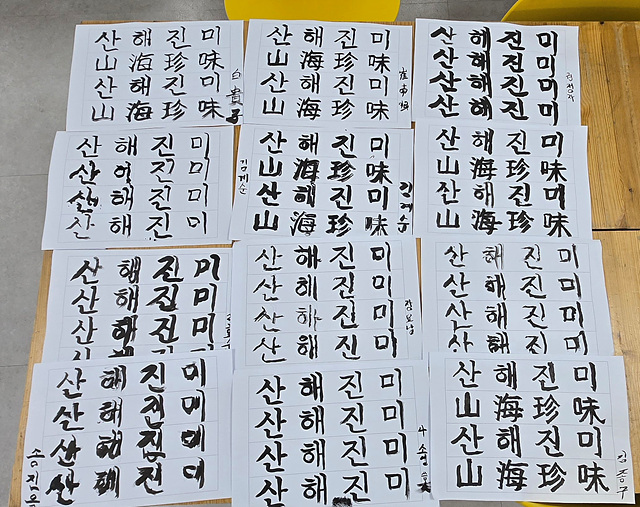 산 해 진 미
山 海 珍 味
산 해 진 미
山 海 珍 味
白 貴
산 해 진 미
山 海 珍 味
산 해 진 미
山 海 珍 味
산 해 진 미
산 해 진 미
산 해 진 미
산 해 진 미
산 해 진 미
산 해 진 미
산 해 진 미
산 해 진 미
산 해 진 미
山 海 珍 味
산 해 진 미
山 海 珍 味
김계순
김계순
산 해 진 미
山 海 珍 味
산 해 진 미
山 海 珍 味
산 해 진 미
산 해 진 미
산 해 진 미
산 해 진 미
산 해 진 미
산 해 진 미
산 해 진 미
장모남
산 해 진 미
산 해 진 미
산 해 진 미
산 해 진 미
산 해 진 미
산 해 진 미
산 해 진 미
산 해 진 미
산 해 진 미
산 해 진 미
산 해 진 미
산 해 진 미
산 해 진 미
山 海 珍 味
산 해 진 미
山 海 珍 味
김종구